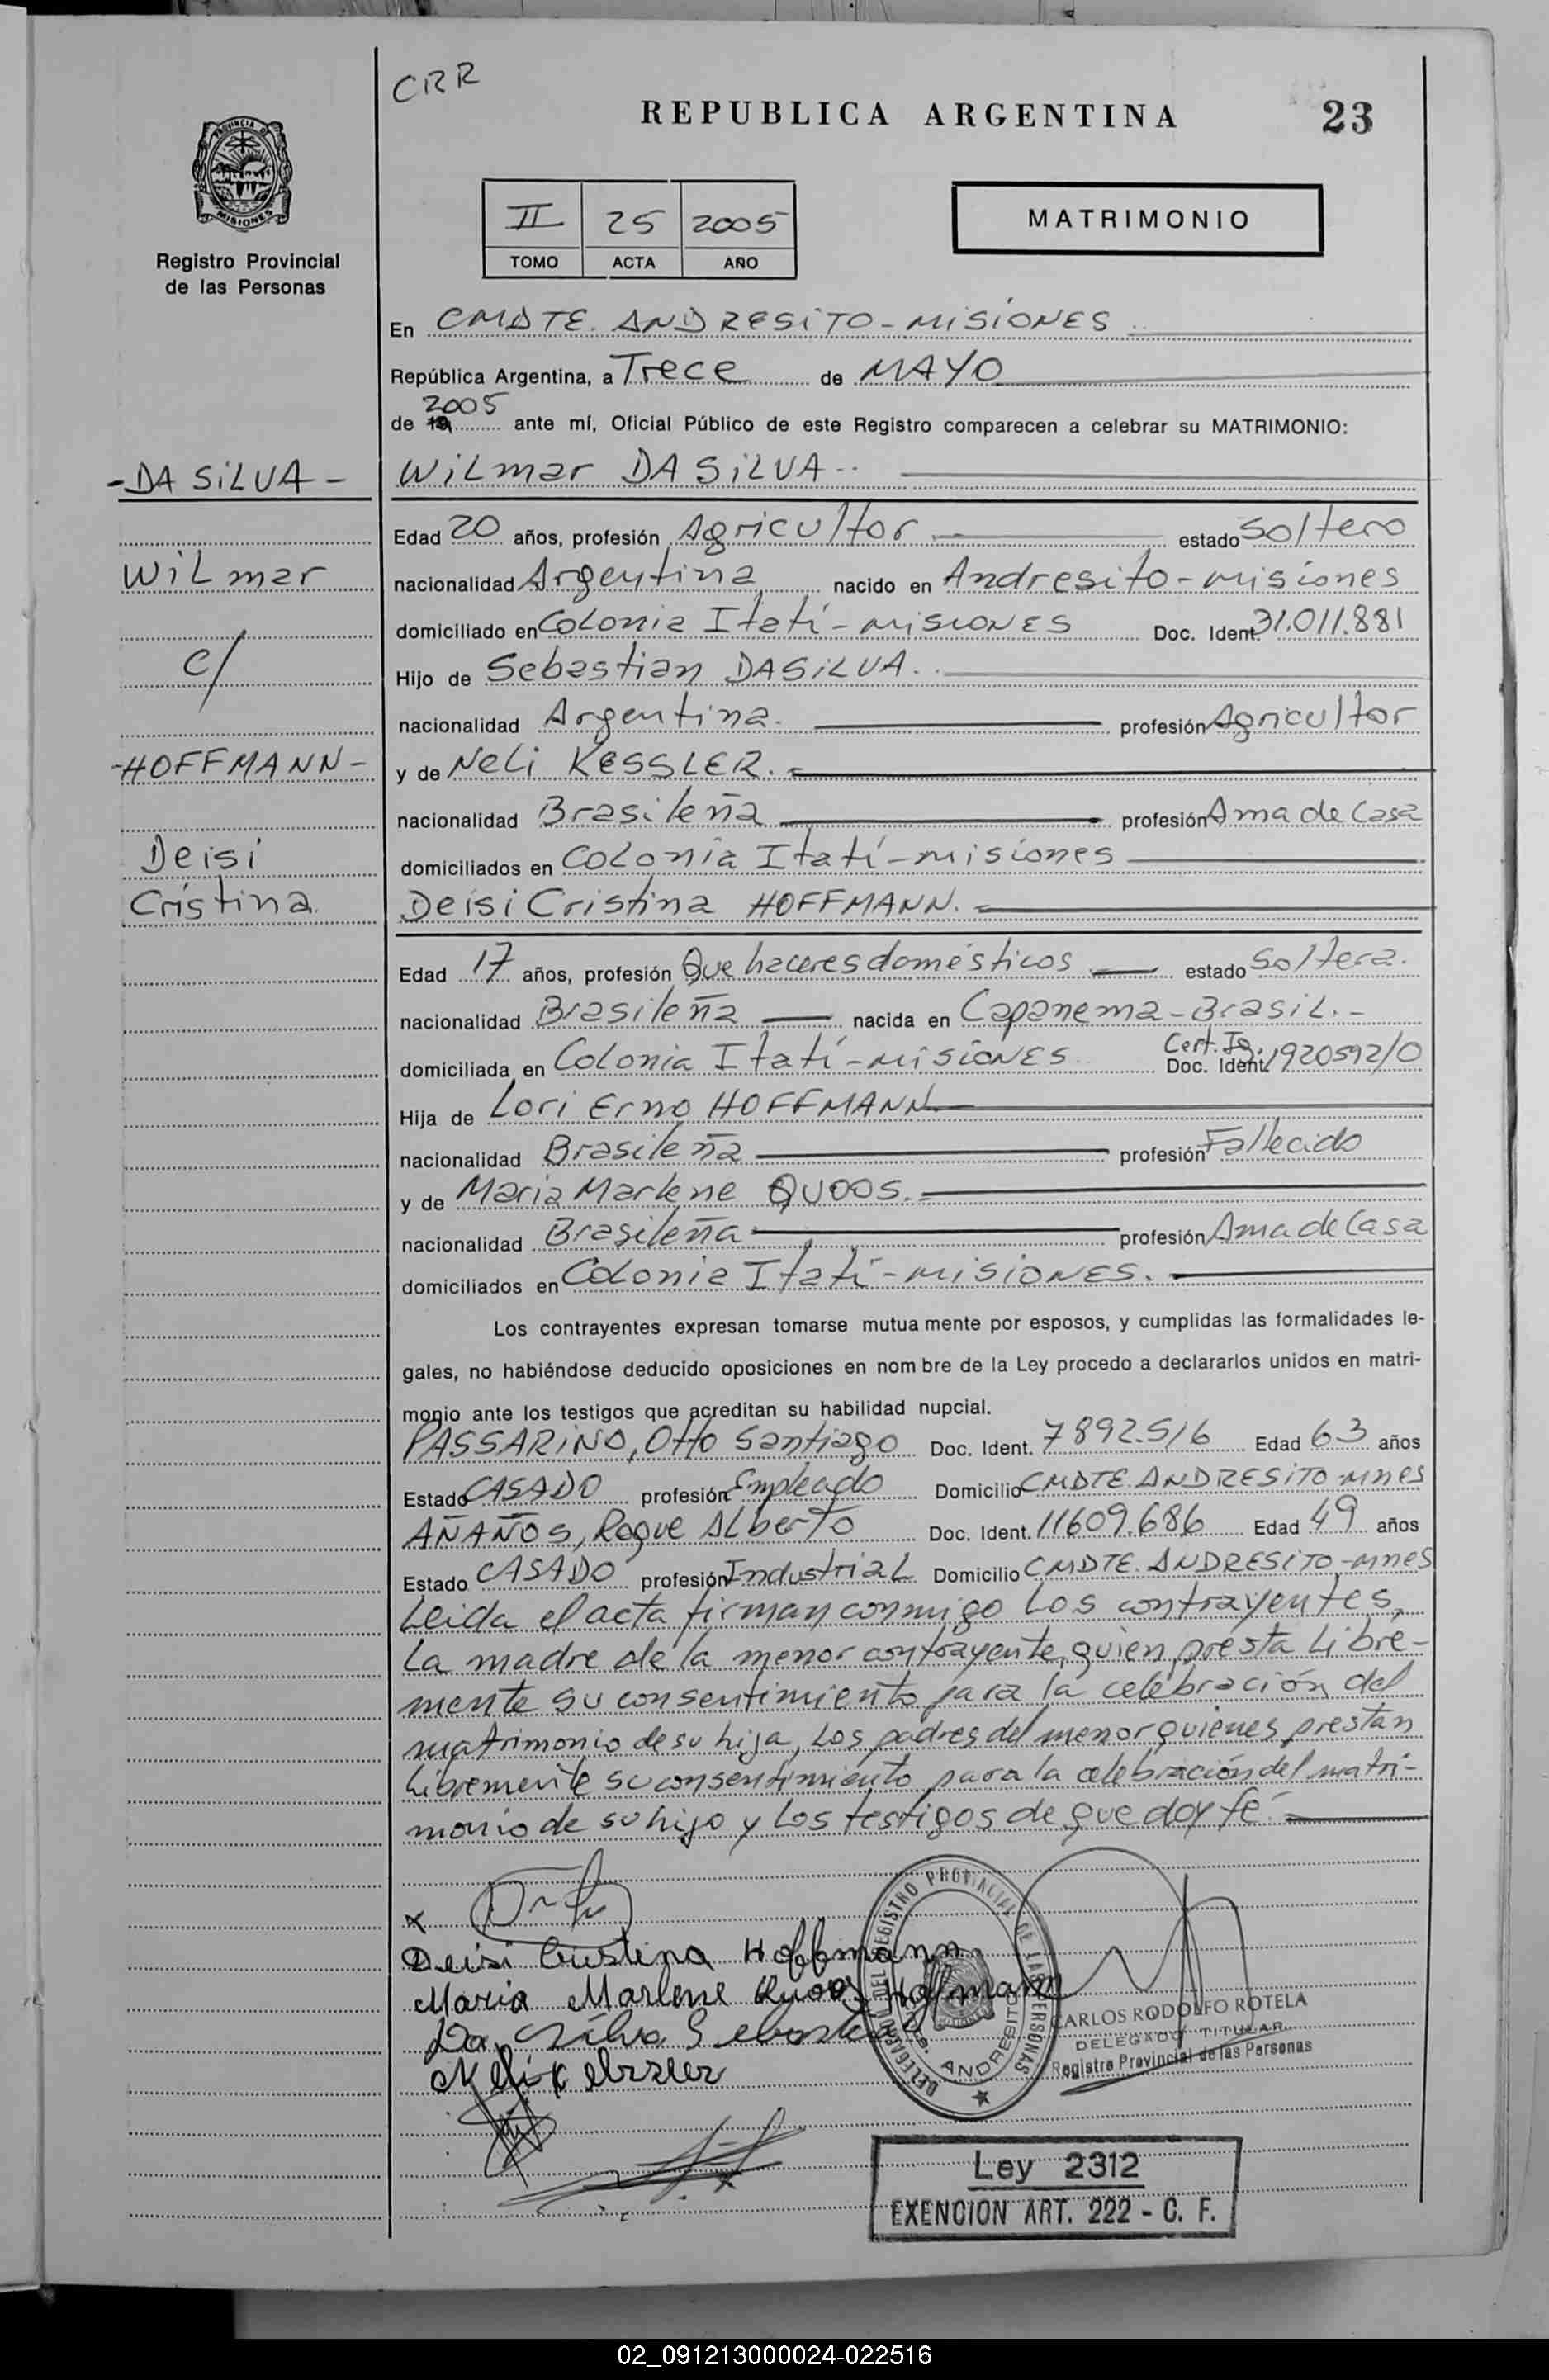 CRR
REPUBLICA ARGENTINA
23
PROVINCIA D
MISIONES
Registro Provincial
de las Personas
II 25 2005
TOMO ACTA AÑO
MATRIMONIO
En CMDTE. ANDRESITO - MISIONES
República Argentina, a Trece de MAYO
de 19 2005 ante mí, Oficial Público de este Registro comparecen a celebrar su MATRIMONIO:
-DA SILVA-
Wilmar DA SILVA..
Edad 20 años, profesión Agricultor estado Soltero
Wilmar
nacionalidad Argentina nacido en Andresito - Misiones
domiciliado en Colonia Itatí - MISIONES Doc. Ident. 31.011.881
c/
Hijo de Sebastian DA SILVA..
nacionalidad Argentina. profesión Agricultor
-HOFFMANN-
y de Neli KESSLER.
nacionalidad Brasileña profesión Ama de Casa
Deisi
domiciliados en Colonia Itatí - misiones
Cristina
Deisi Cristina HOFFMANN.
Edad 17 años, profesión Que haceres domésticos estado Soltera.
nacionalidad Brasileña nacida en Capanema - Brasil.-
domiciliada en Colonia Itatí - MISIONES Cert. Ig. Doc. Ident. 1920592/0
Hija de Lori Erno HOFFMANN
nacionalidad Brasileña profesión Fallecido
y de Maria Marlene QUOOS.
nacionalidad Brasileña profesión Ama de Casa
domiciliados en Colonia Itatí - MISIONES.
Los contrayentes expresan tomarse mutua mente por esposos, y cumplidas las formalidades le-
gales, no habiéndose deducido oposiciones en nom bre de la Ley procedo a declararlos unidos en matri-
monio ante los testigos que acreditan su habilidad nupcial.
PASSARINO, Otto Santiago Doc. Ident. 7892.516 Edad 63 años
Estado CASADO profesión Empleado Domicilio CMDTE. ANDRESITO-Mnes
AÑAÑOS, Roque Alberto Doc. Ident. 11609.686 Edad 49 años
Estado CASADO profesión Industrial Domicilio CMDTE. ANDRESITO-Mnes
Leida el acta firman conmigo Los contrayentes,
La madre de la menor contrayente, quien presta Libre-
mente su consentimiento para la celebración del
matrimonio de su hija, Los padres del menor quienes prestan
Libremente su consentimiento para la celebración del matri-
monio de su hijo y Los testigos de que doy fe.
x
Deisi Cristina Hoffmann
Maria Marlene Quoos Hoffmann
Da Silva Sebastião
Neli Kebssler
DELEGADO DEL REGISTRO PROVINCIAL DE LAS PERSONAS
ANDRESITO
CARLOS RODOLFO ROTELA
DELEGADO TITULAR
Registro Provincial de las Personas
Ley 2312
EXENCION ART. 222 - C. F.
02_091213000024-022516